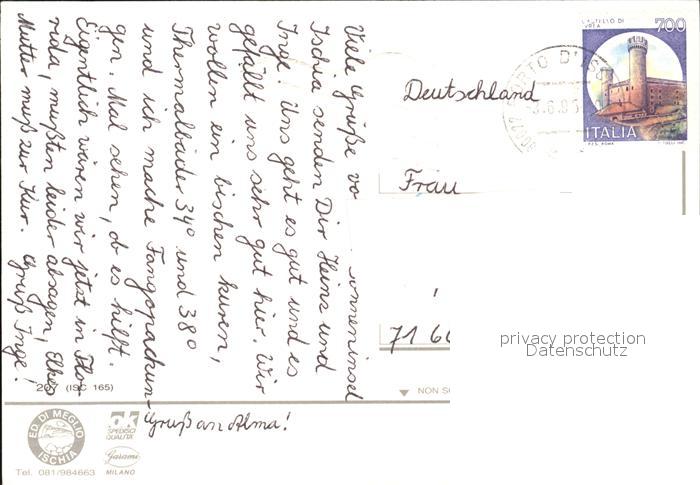 Viele Grüße vo
nneninsel
Ischia senden Dir Heinz und
Inge. Uns geht es gut und es
gefällt uns sehr gut hier. Wir
wollen ein bischen kuren,
Thermalbäder 34° und 38°
und ich mache Fangopackun-
gen. Mal sehen, ob es hilft.
Eigentlich wären wir jetzt in Flo-
rida, mußten leider absagen, Elkes
Mutter muß zur Kur. Gruß Inge!
Gruß an Alma!
Deutschland
Frau
71 6
CASTELLO DI
700
ITALIA
PORTO D'
privacy protection
Datenschutz
(ISC 165)
NON S
ED. DI MEGLIO
ISCHIA
ok
SPEDISCI
QUALITÀ
Garami
MILANO
Tel. 081/984663